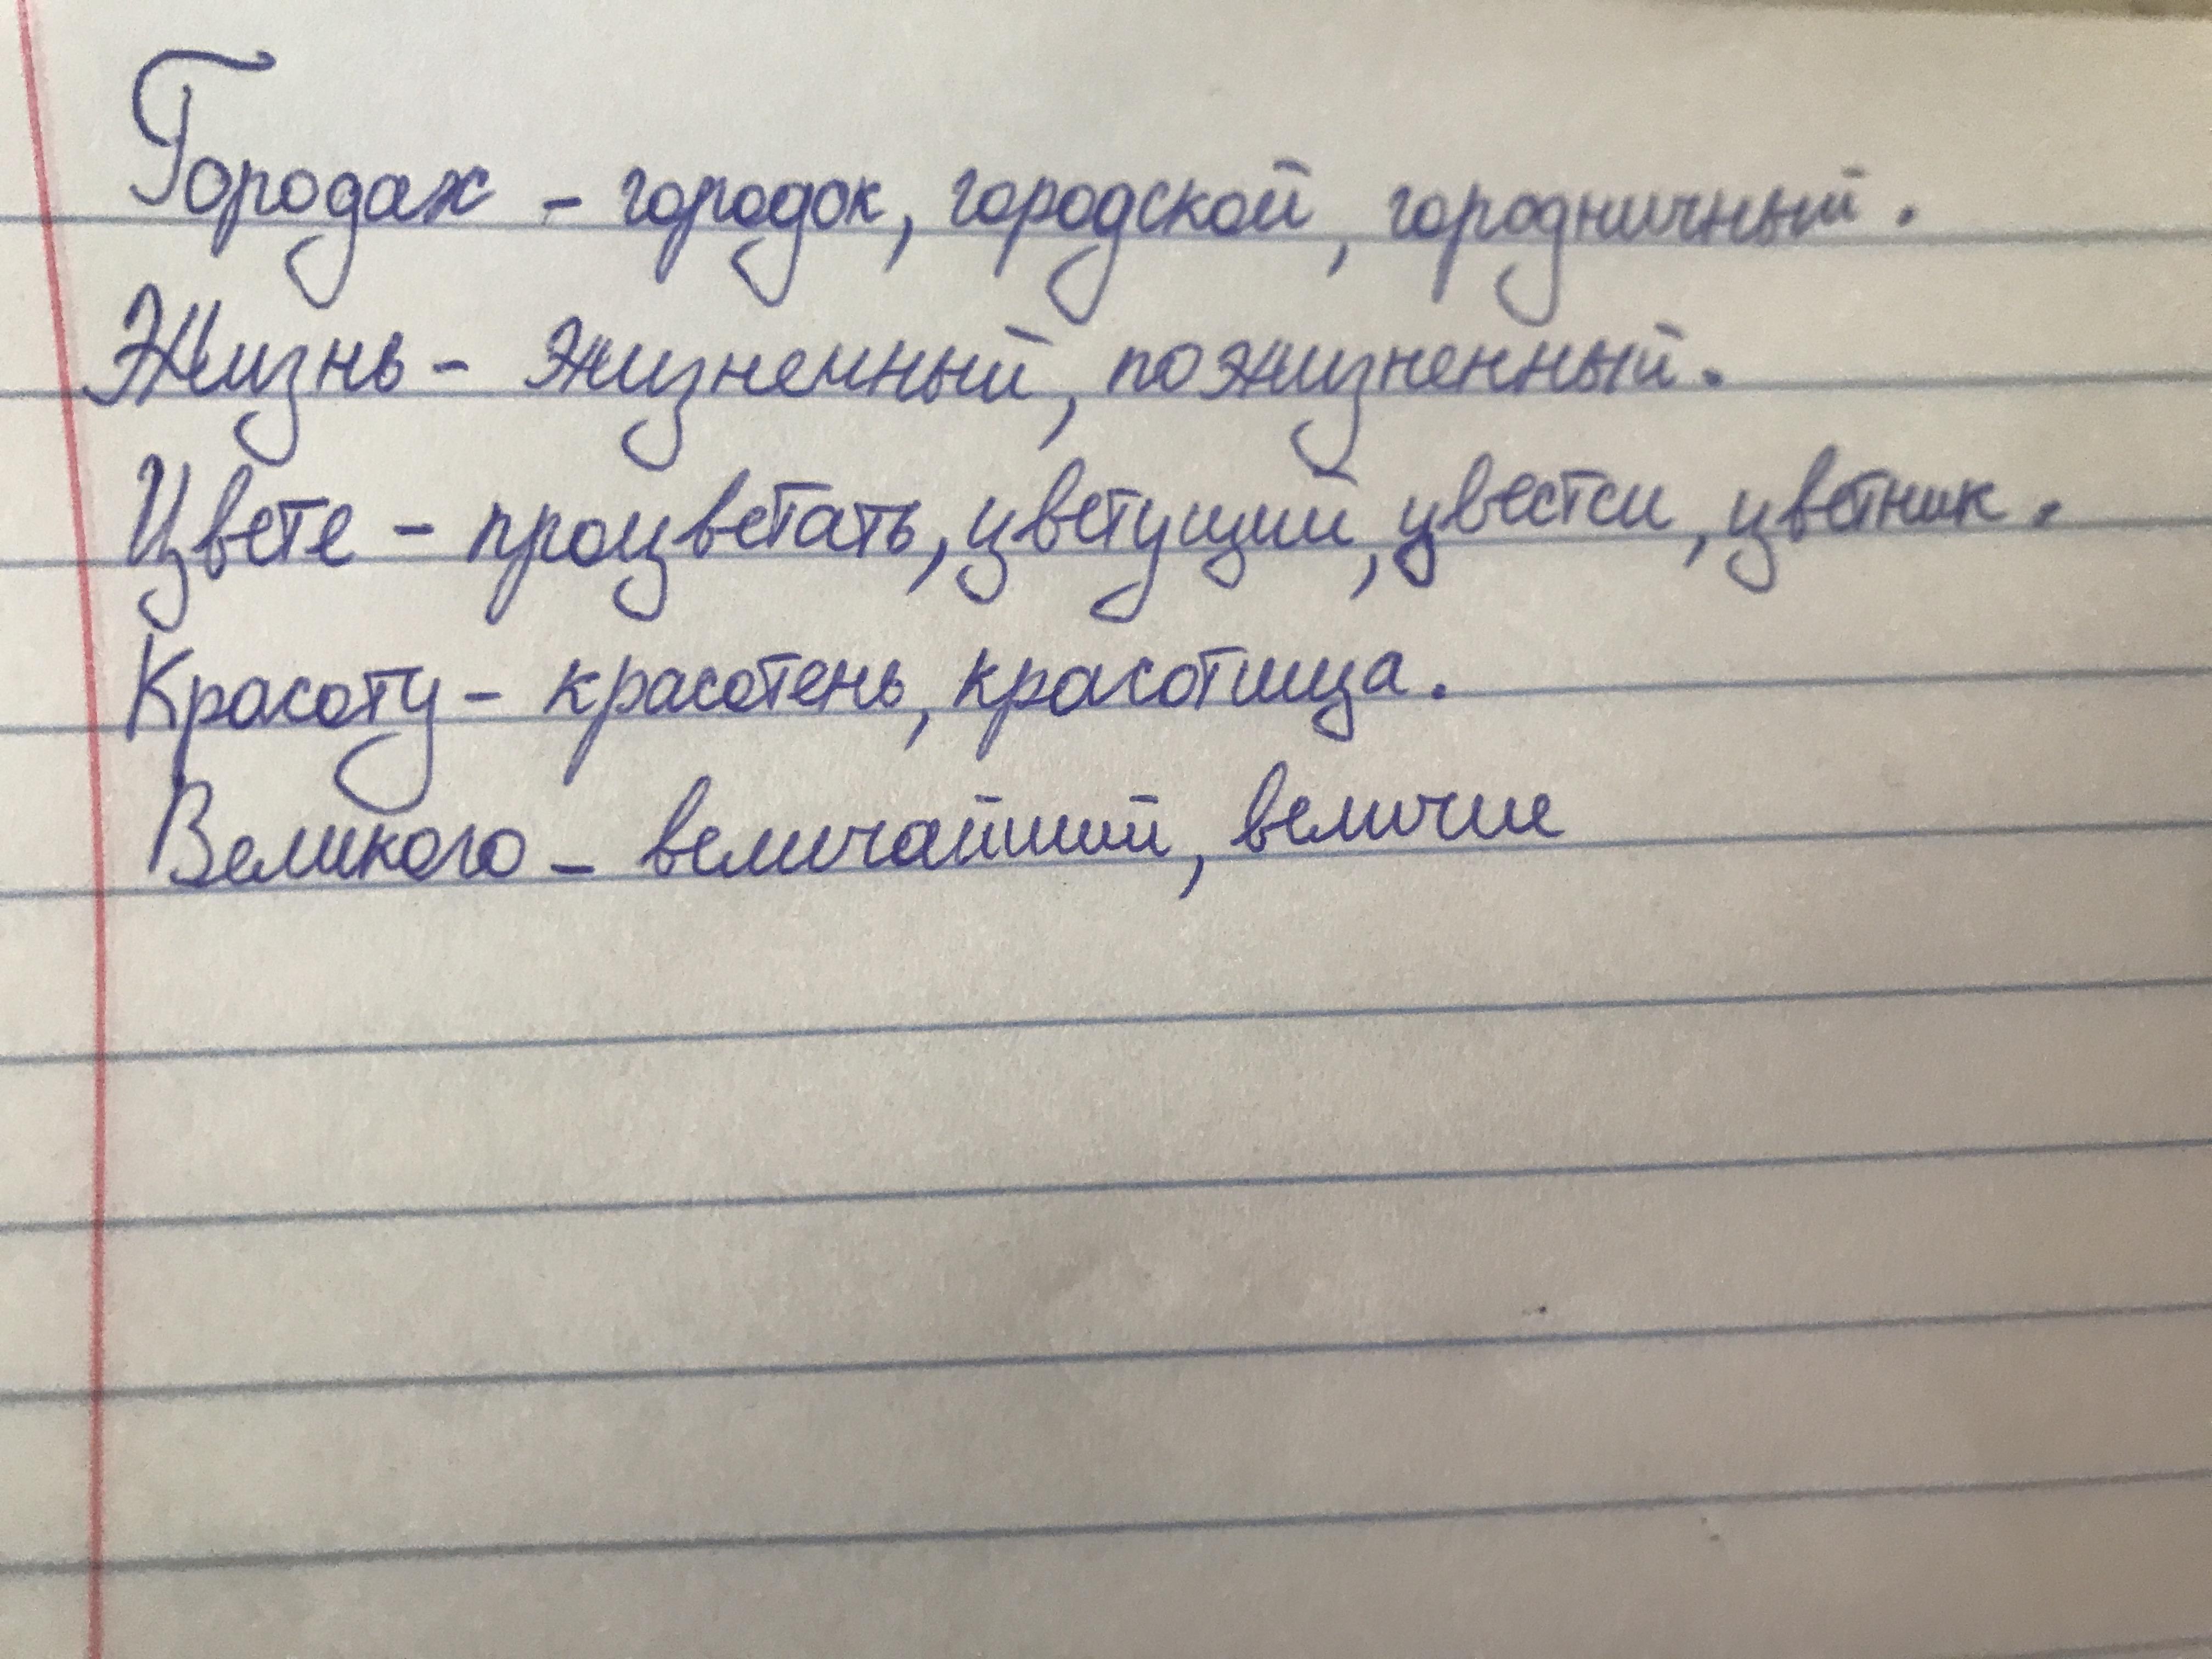 Городах - городок, городской, городничный.
Жизнь - жизненный, пожизненный.
Цвете - процветать, цветущий, цвести, цветник.
Красоту - красотень, красотища.
Великого - величайший, величие